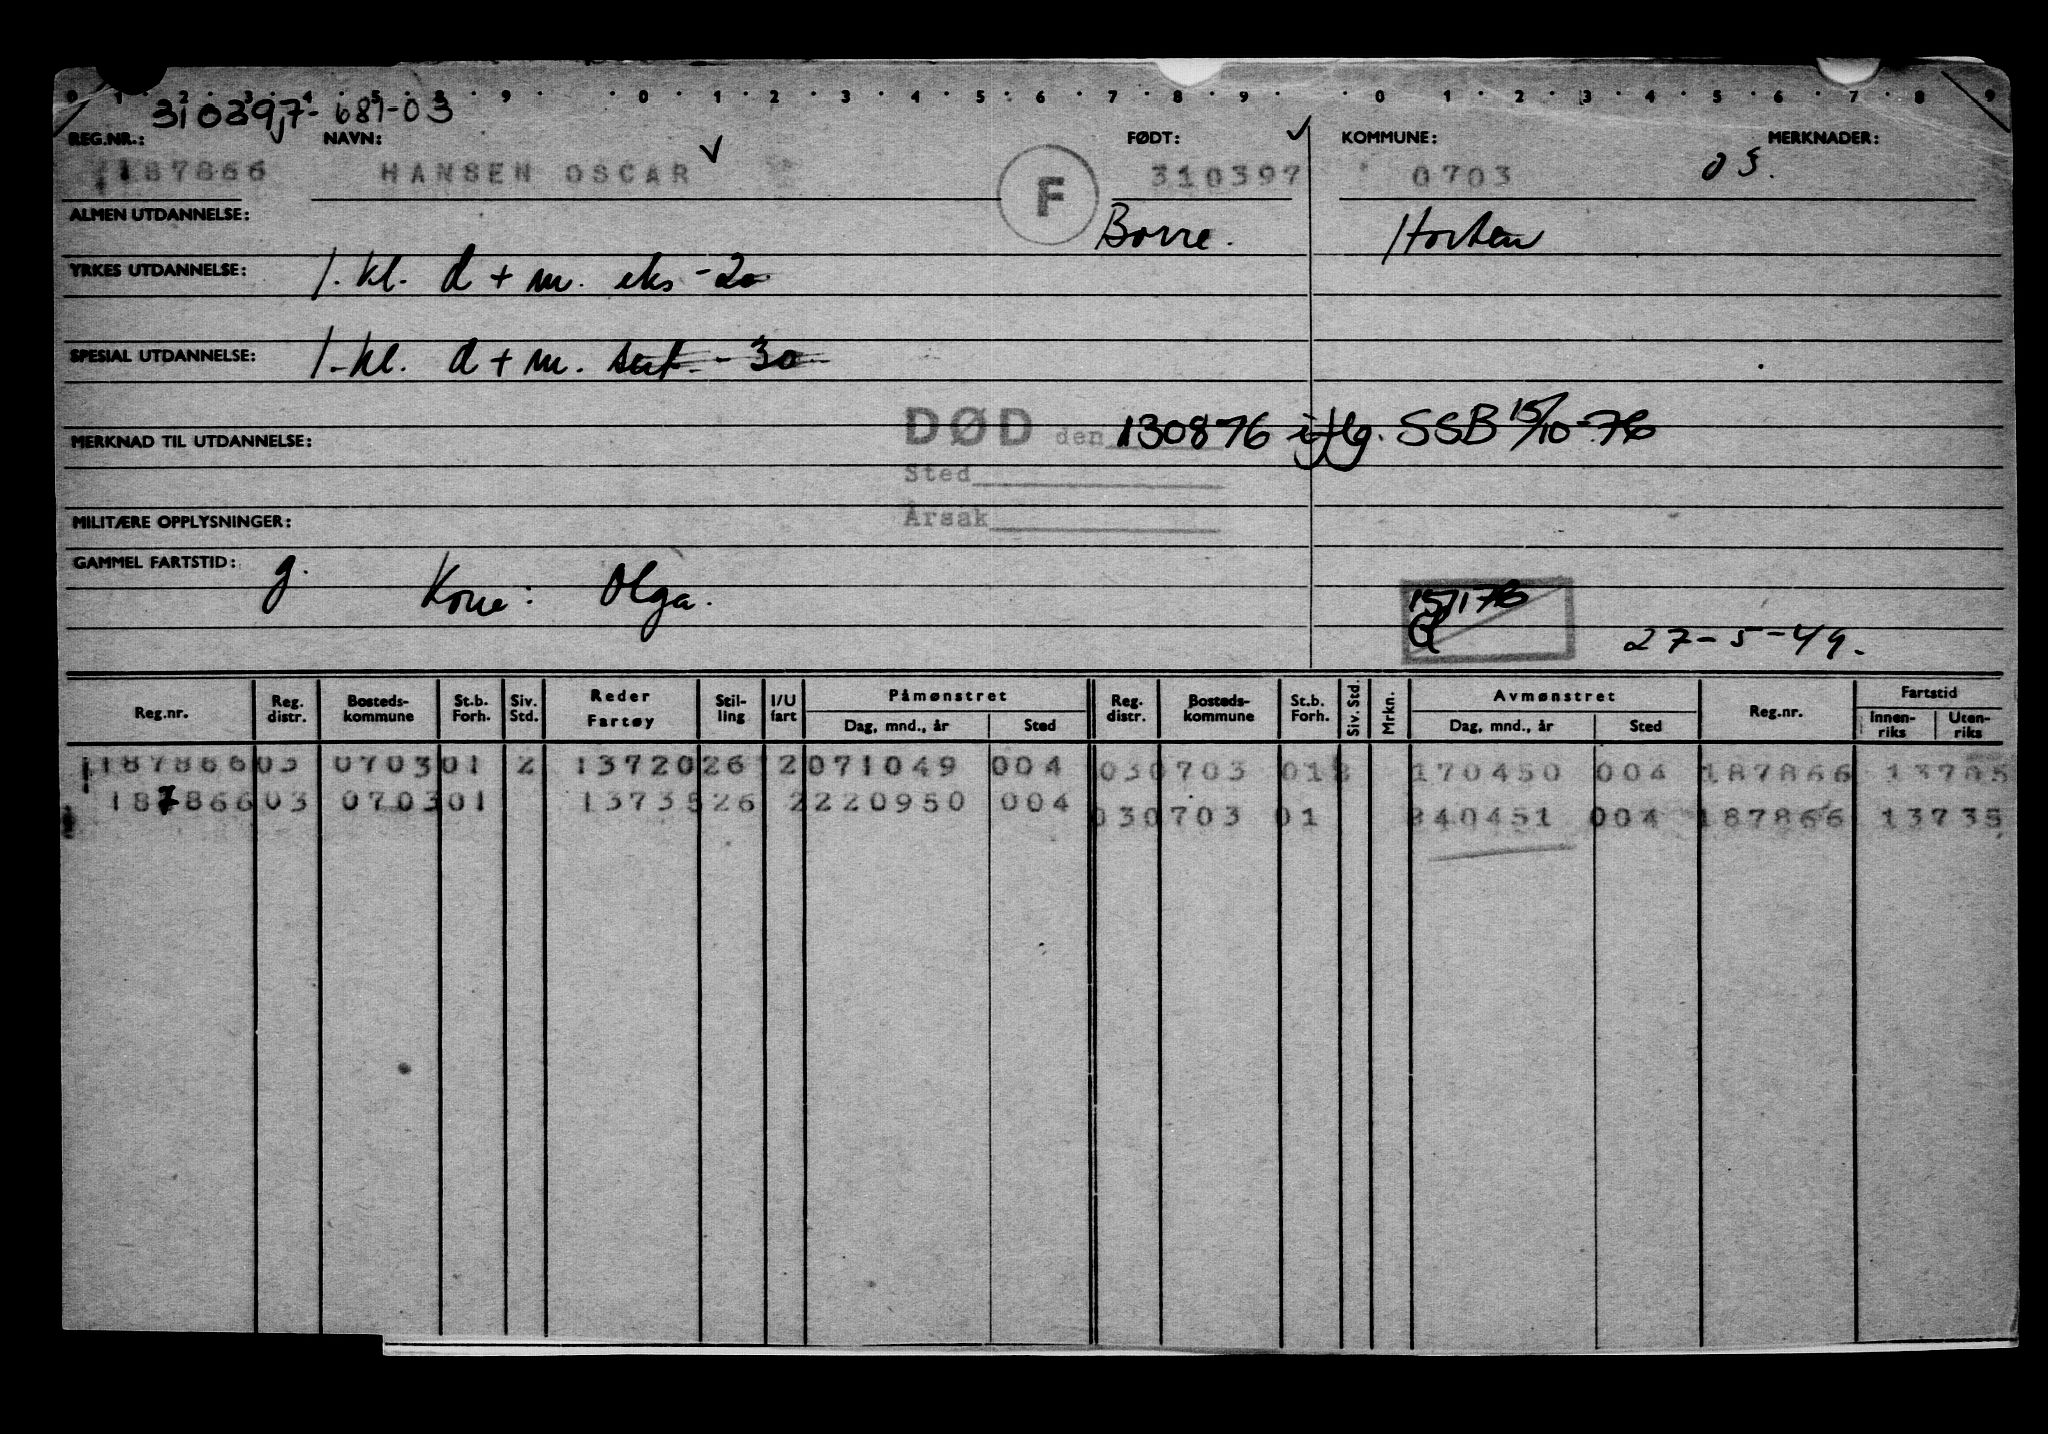 0 1 2 3 4 5 8 9 0 1 2 3 4 5 6 7 8 9 0 1 2 3 4 5 6 7 8 9
310397- 689-03
REG.NR.: NAVN: FØDT: KOMMUNE: MERKNADER:
187866 HANSEN OSCAR F 310397 0703 03.
ALMEN UTDANNELSE: Borre. Horten
YRKES UTDANNELSE: 1. kl. d + m. eks -20
SPESIAL UTDANNELSE: 1. kl. d + m. sert. - 30
DØD den 130876 iflg. SSB 15/10-76
MERKNAD TIL UTDANNELSE:
Sted
Årsak
MILITÆRE OPPLYSNINGER:
GAMMEL FARTSTID: g. Kone: Olga.
27-5-49.
Reg.nr. Reg. distr. Bosteds-kommune St.b. Forh. Siv. Std. Reder Fartøy Stil-ling I/U fart Påmønstret Dag, mnd., år Sted Reg. distr. Bosteds-kommune St.b. Forh. Siv. Std. Mrkn. Avmønstret Dag, mnd., år Sted Reg.nr. Fartstid Innen-riks Uten-riks
187866 03 0703 01 2 13720 26 2 071049 004 03 0703 01 170450 004 187866 13705
187866 03 0703 01 13735 26 2 220950 004 03 0703 01 240451 004 187866 13735